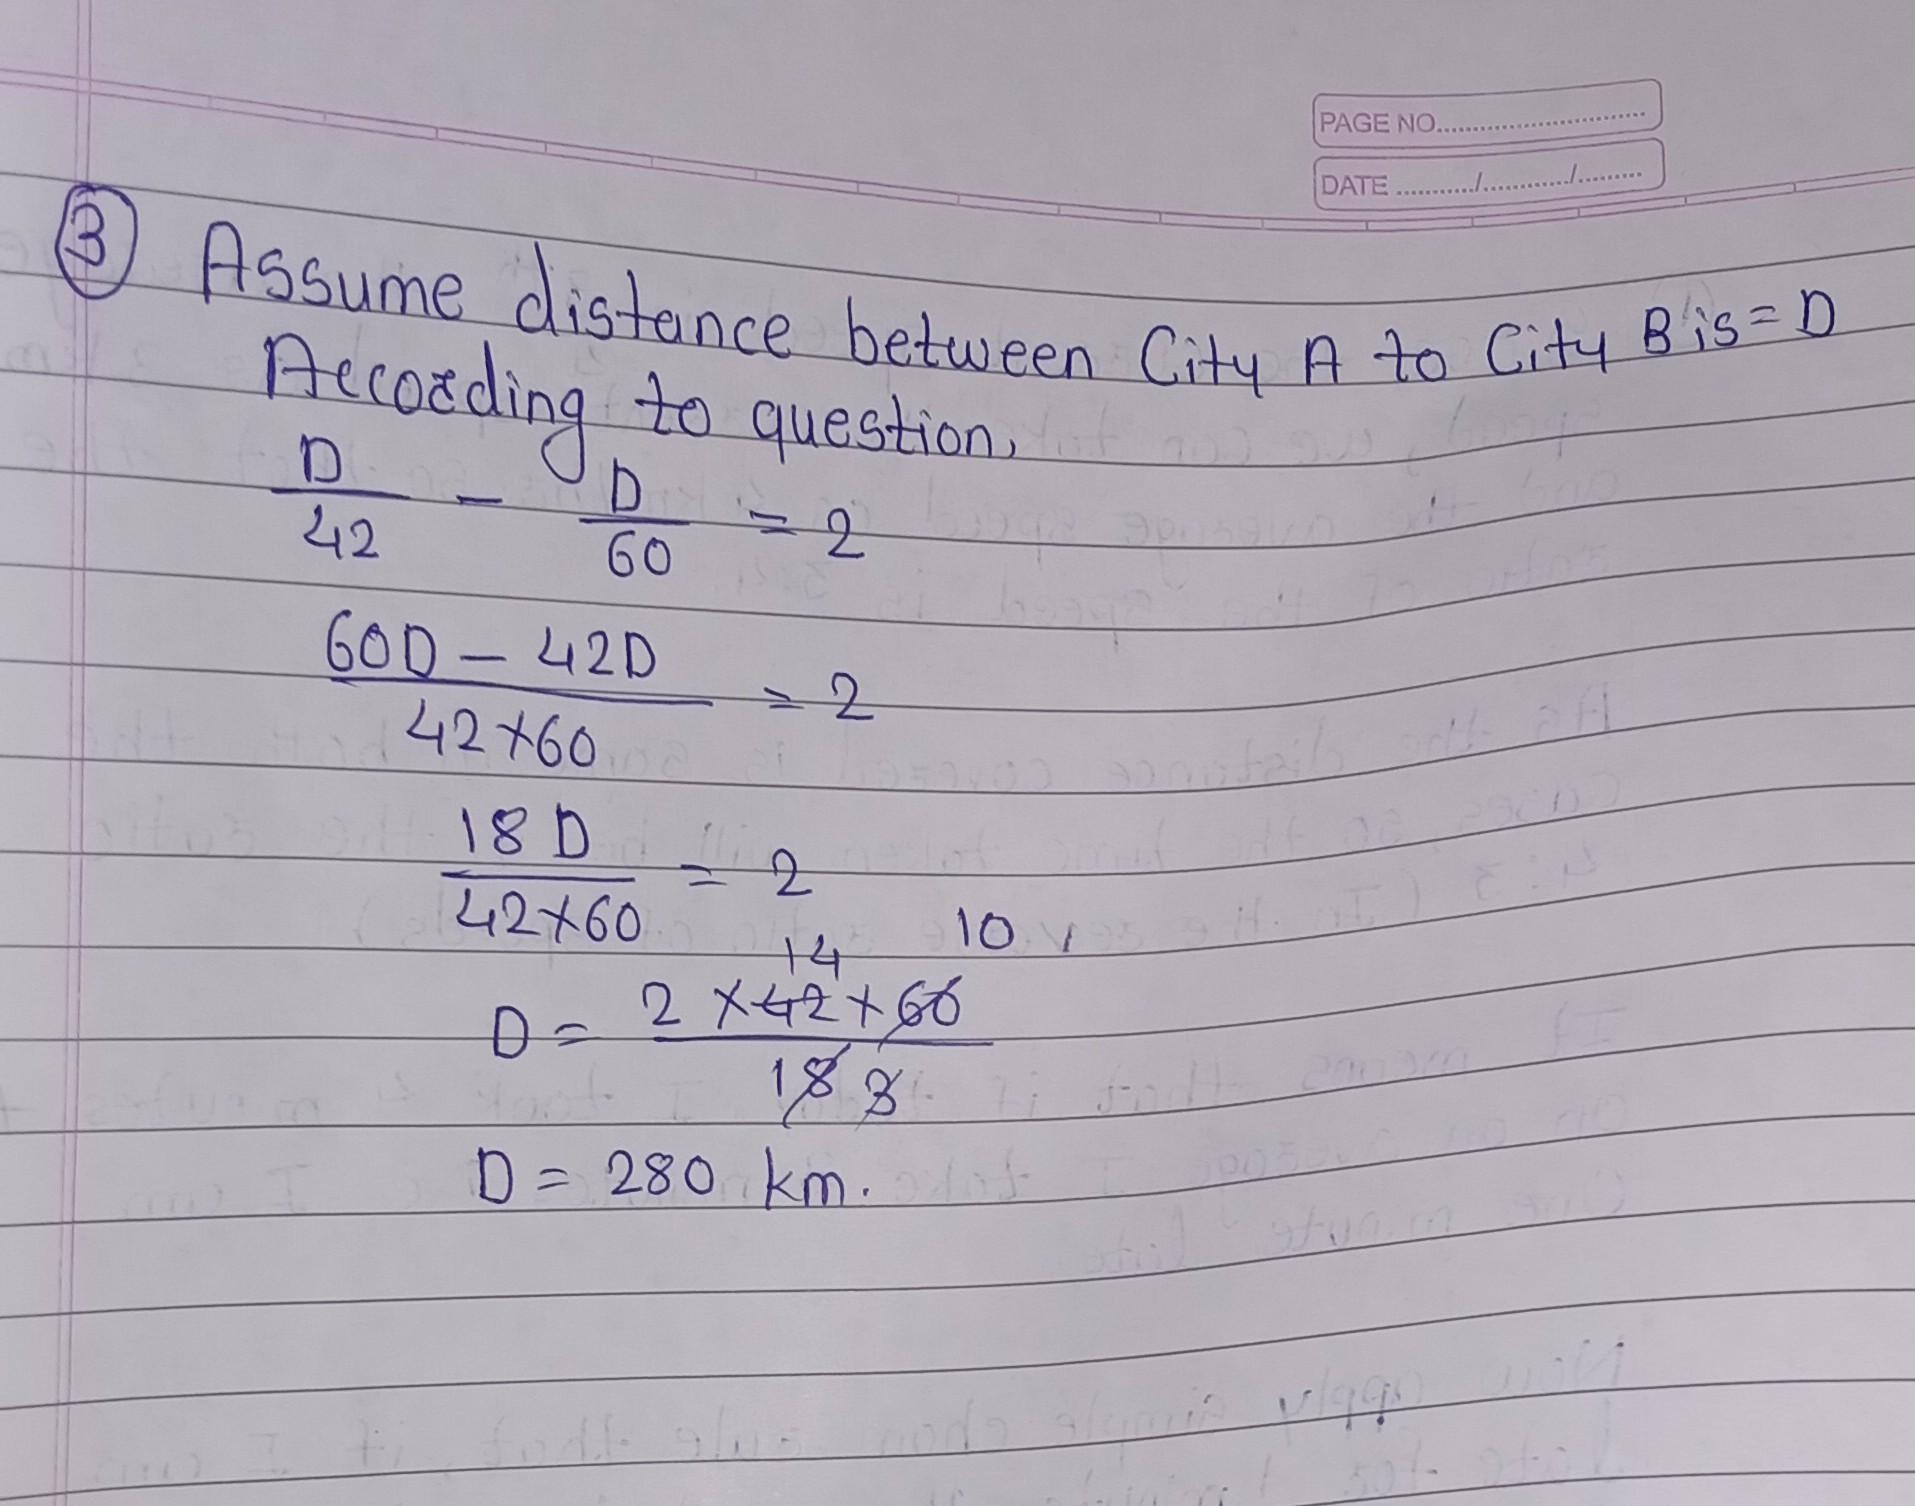 PAGE NO.
DATE / /
3 Assume distance between City A to City B is = D
According to question,
D/42 - D/60 = 2
60D - 42D / 42×60 = 2
18 D / 42×60 = 2
14 10
D = 2 × 42 × 60 / 18 3
D = 280 km.